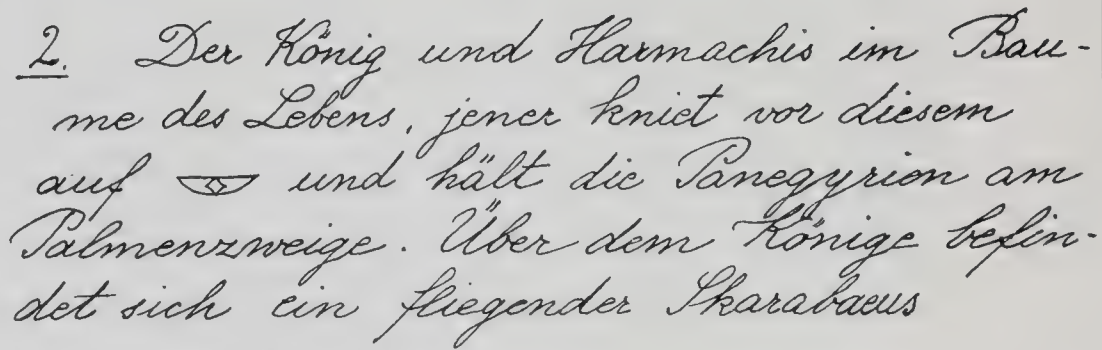 2. Der König und Harmachis im Bau-
me des Lebens, jener kniet vor diesem
auf 𓎱 und hält die Panegyrien am
Palmenzweige. Über dem Könige befin-
det sich ein fliegender Skarabaeus